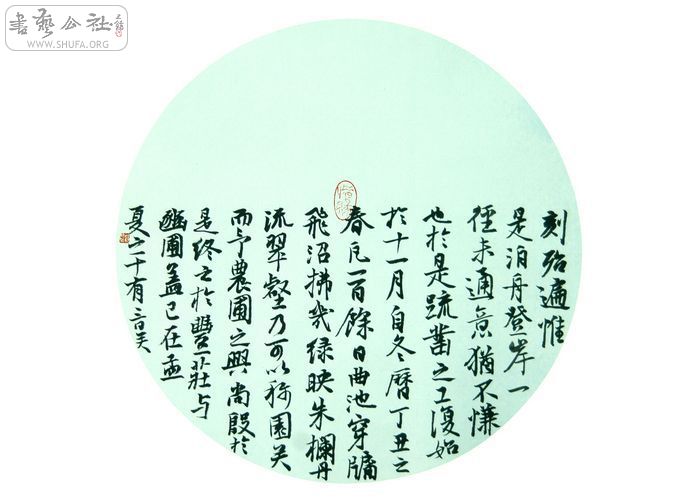 書藝公社
WWW.SHUFA.ORG
刻殆遍惟
是泊舟登岸一
徑未通意猶不慊
也於是疏鑿之工復始
於十一月自冬曆丁丑之
春凡一百餘日曲池穿牖
飛沼拂幾綠映朱欄丹
流翠壑乃可以稱園矣
而予農圃之興尚殷於
是終之於豐莊與
豳圃蓋已在孟
夏之十有三日矣